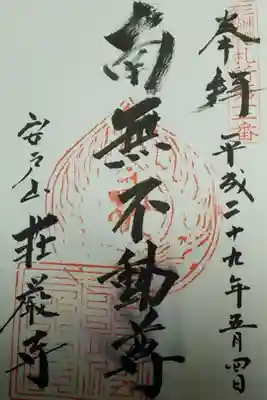 奉拝
平成二十九年五月四日
南無不動尊
安戸山
荘厳寺